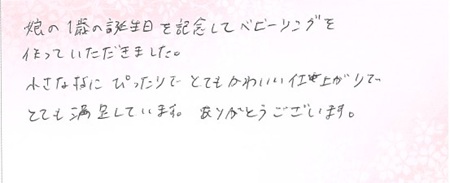 娘の1歳の誕生日を記念してベビーリングを
作っていただきました。
小さな指にぴったりでとてもかわいい仕上がりで
とても満足しています。ありがとうございます。